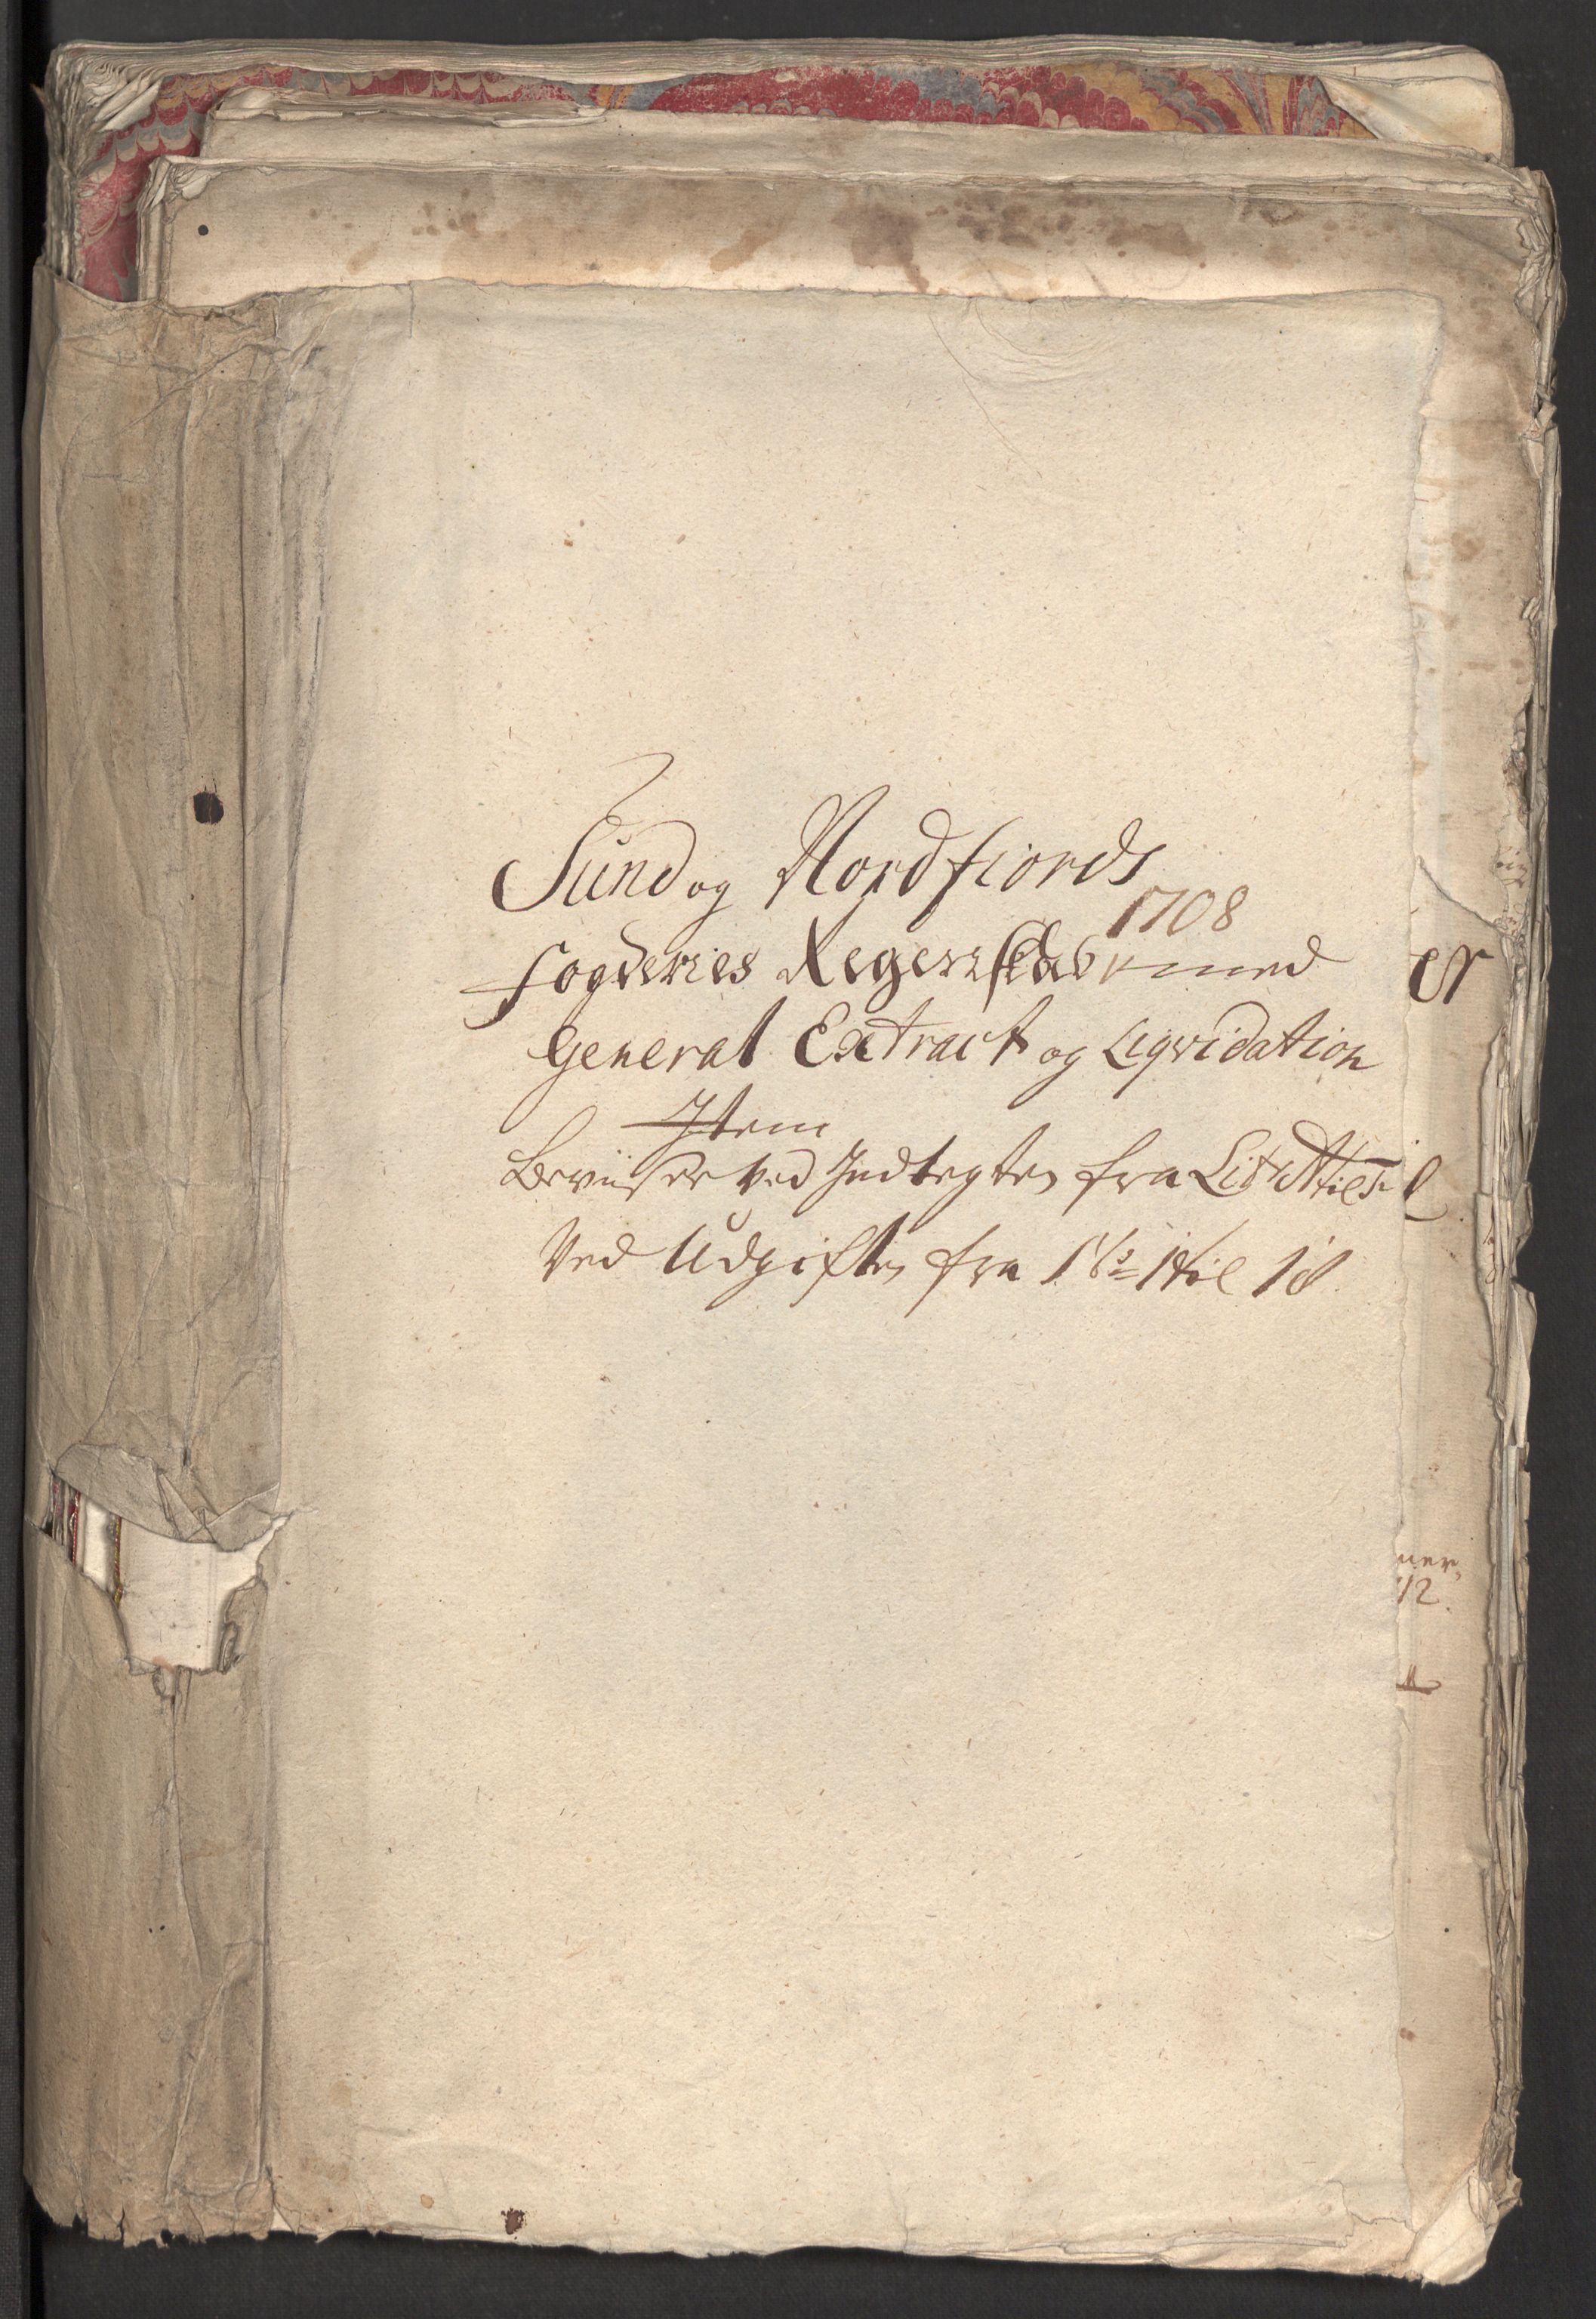 Sund og Nordfiords
1708
fogderies Regenskab med
General Extract og Liqvidation
Item
Beviiser ved Indtegten fra Litr A til
Ved Udgiften fra No 1 til 18
er
ner,
12.